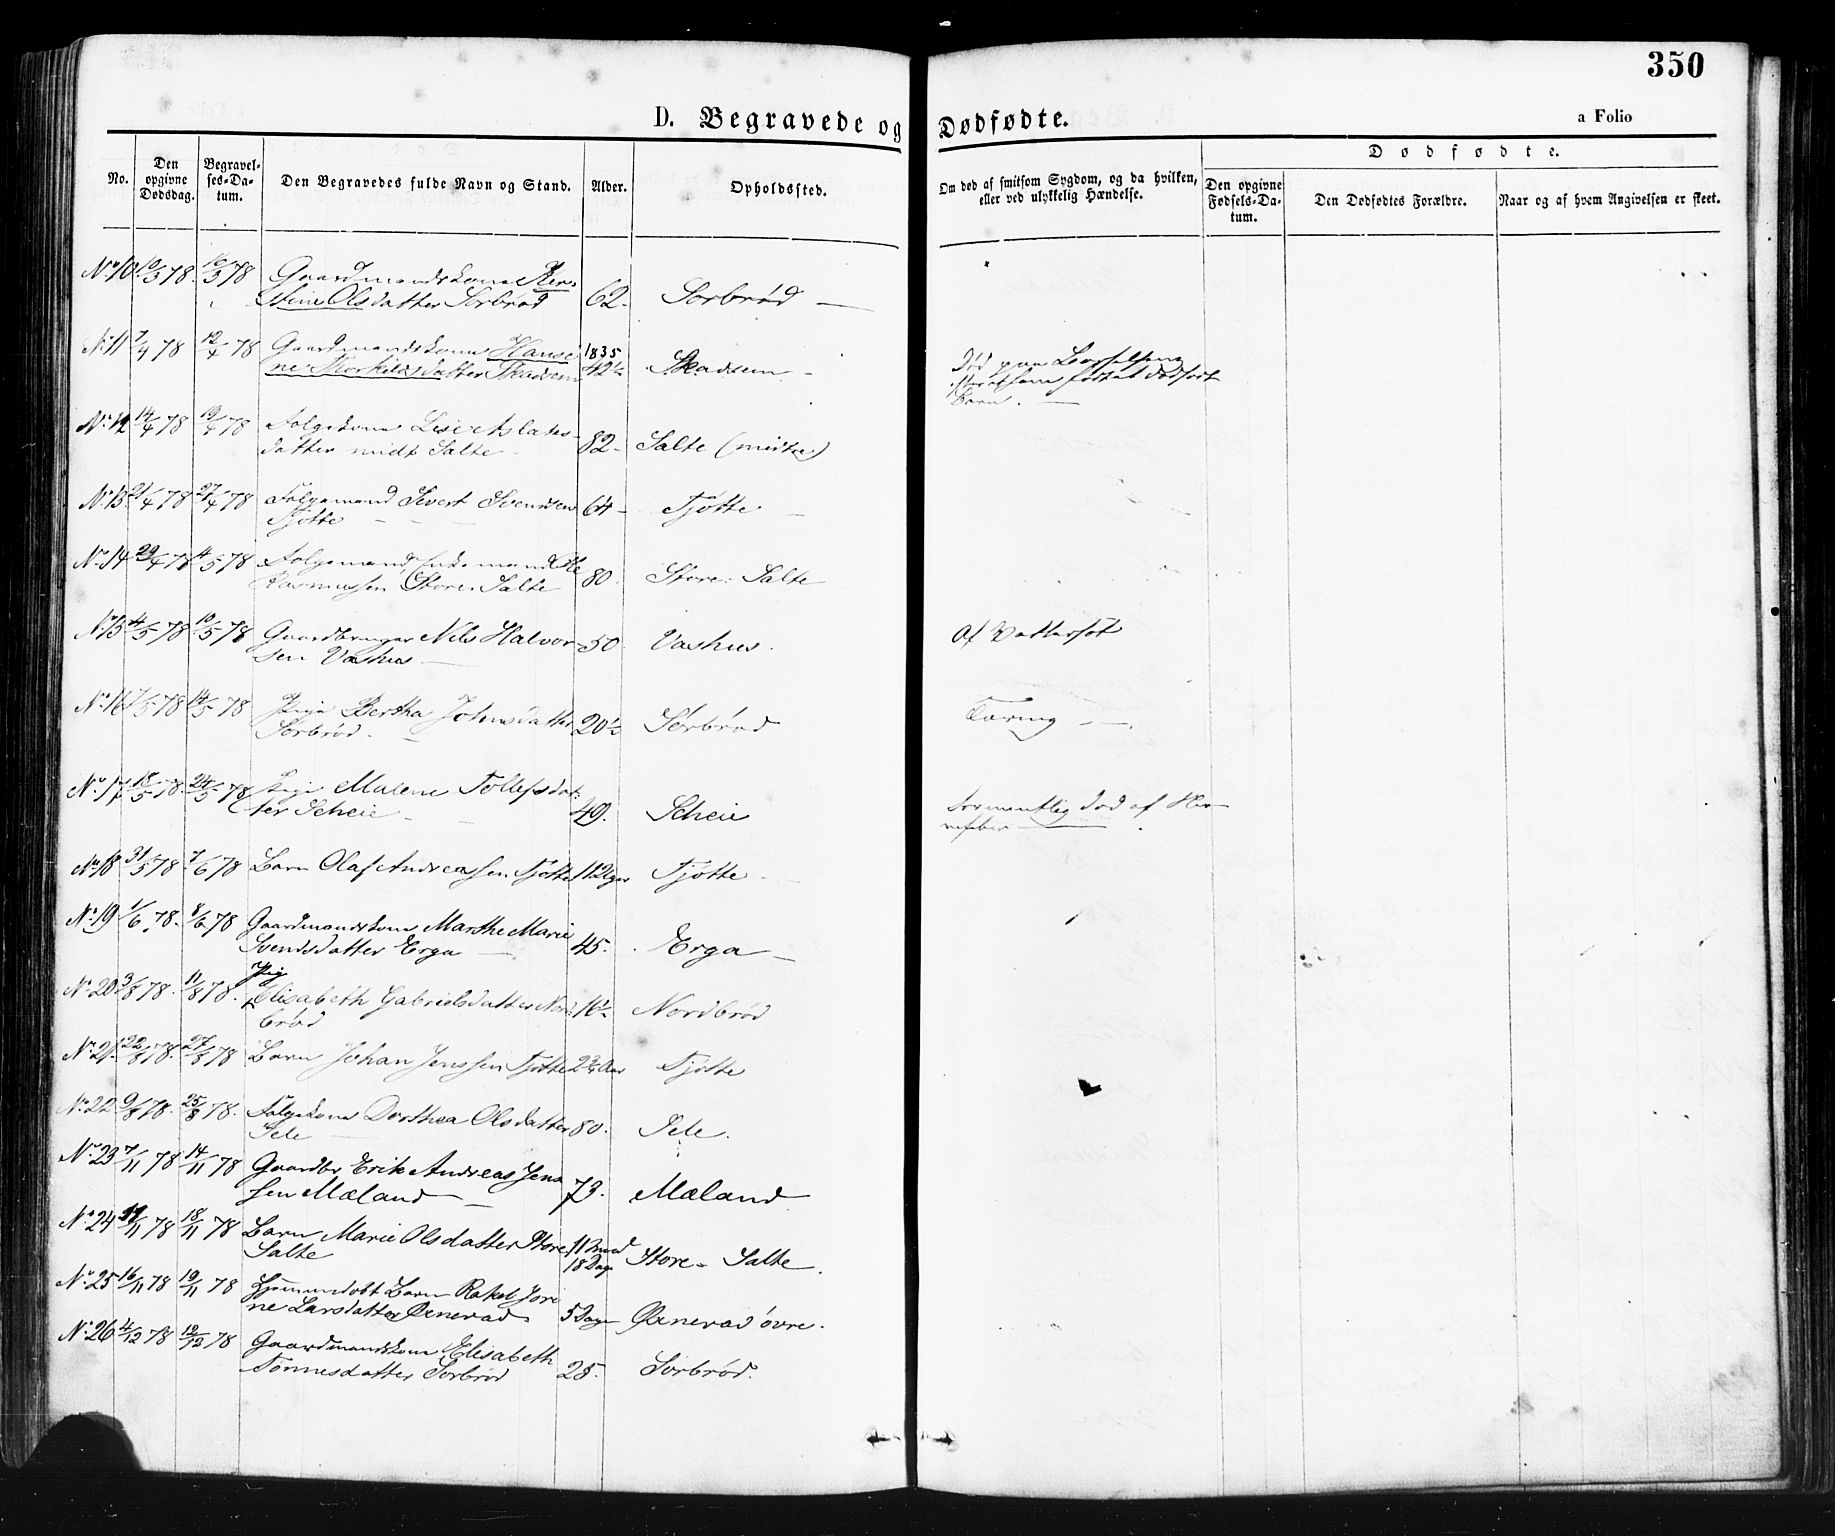 350
D. Begravede og Dødfødte.
a Folio
No.
Den opgivne Dødsdag.
Begravelses-Datum.
Den Begravedes fulde Navn og Stand.
Alder.
Opholdssted.
Om død af smitsom Sygdom, og da hvilken, eller ved ulykkelig Hændelse.
Dødfødte.
Den opgivne Fødsels-Datum.
Den Dødfødtes Forældre.
Naar og af hvem Angivelsen er skeet.
No 10 10/3 78. 16/3 78 Gaardmandskone Kirs-
stine Olsdatter Sørbrød 62- Sørbrød —
No 11 7/4 78 12/4 78 Gaardmandskone Hansi- 1835
ne Thorkilsdatter Skadsem 42½ Skadsem - Død paa Barselseng
fødsel dødfødt
Barn. —
No 12 14/4 78 19/4 78 Folgekone Lise Aslaks-
datter midt Salte - 82- Salte (midtre)
No 13 21/4 78 27/4 78 Folgemand Sivert Svendsen
Tjøtte - - - 64- Tjøtte -
No 14 29/4 78 4/5 78 Folgemand, Enkemand Ole
Rasmussen Store Salte 80. Store-Salte
No 15 4/5 78 10/5 78 Gaardbruger Nils Halvor-
sen Vashus — 50. Vashus. Af Vattersot
No 16 7/5 78 14/5 78 Pige Bertha Johnsdatter
Sørbrød. - 20½ Sørbrød Tæring - -.
No 17 18/5 78. 24/5 78 Pige Malene Tollefsdat-
ter Scheie - - 49. Scheie formentlig død af Ner-
vefeber —
No 18 31/5 78. 7/6 78 Barn Olaf Andreassen Tjøtte 11 Uger Tjøtte -
No 19 1/6 78. 8/6 78 Gaardmandskone Marthe Marie
Svendsdatter Erga — 45. Erga —
No 20 3/8 78. 11/8 78. Pige
Elisabeth Gabrielsdatter Nord-
brød 16½ Nordbrød
No 21. 22/8 78. 27/8 78 Barn Johan Jenssen Tjøtte 2¾ Aar Tjøtte
No 22 9/8 78. 25/8 78. Folgekone Dorthea Olsdatter
Sele — 80. Sele.
No 23 7/11 78 14/11 78 Gaardbr Erik Andreas Jens-
sen Mæland — 73. Mæland
No 24 11/11 78 18/11 78 Barn Marie Olsdatter Store
Salte 11 Mnd
18 Dage Store-Salte.
No 25 16/11 78 19/11 78 Hjemmedøbt Barn Rakel Jori-
ne Larsdatter Øxnevad 5 Dage Øxnevad øvre.
No 26 4/12 78 12/12 78 Gaardmandskone Elisabeth
Tønnesdatter Sørbrød 25. Sørbrød.